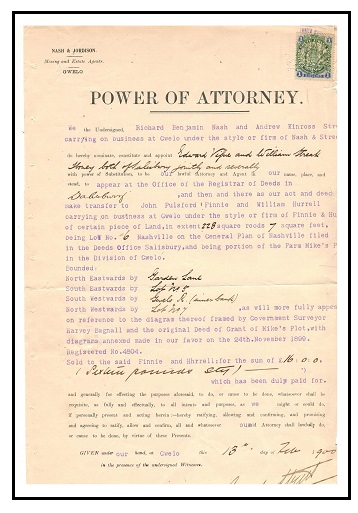 NASH & JORDISON.
Mining and Estate Agents.
GWELO
POWER OF ATTORNEY.
We the Undersigned, Richard Benjamin Nash and Andrew Kinross
carrying on business at Gwelo under the style or firm of Nash &
do hereby nominate, constitute and appoint Edward and William
Honey both of Salisbury jointly and severally
with power of Substitution, to be our lawful Attorney and Agent in our name, place, and
stead, to appear at the Office of the Registrar of Deeds in
Salisbury ,and then and there as our act and deed
make transfer to John Pulsford Finnie and William Hurrell
carrying on business at Gwelo under the style of firm of Finnie &
of certain piece of Land, in extent 228 square roods 7 square feet,
being Lot No. 6 Nashville on the General Plan of Nashville filed
in the Deeds Office Salisbury, and being portion of the Farm Mike's
in the Division of Gwelo.
bounded:
North Eastwards by Garden Lane
South Eastwards by Lot No 5
South Westwards by Gwelo R.
North Westwards by Lot No 7 ,as will more fully appear
on reference to the diagram thereof framed by Government Surveyor
Harvey Bagnall and the original Deed of Grant of Mike's Plot, with
diagrams annexed made in our favor on the 24th. November 1899.
Registered No. 4804.
Sold to the said Finnie and Hurrell for the sum of 16.0.0
( Sixteen pounds stg )
which has been duly paid for.
and generally for effecting the purposes aforesaid, to do, or cause to be done, whatsoever shall be
requisite, as fully and effectually, to all intents and purposes, as we might or could do,
if personally present and acting herein:—hereby ratifying, allowing and confirming, and promising
and agreeing to ratify, allow and confirm, all and whatsoever our Attorney shall lawfully do,
or cause to be done, by virtue of these Presents.
GIVEN under our hand, at Gwelo this 13th day of Feb 1900
in the presence of the undersigned Witnesses.